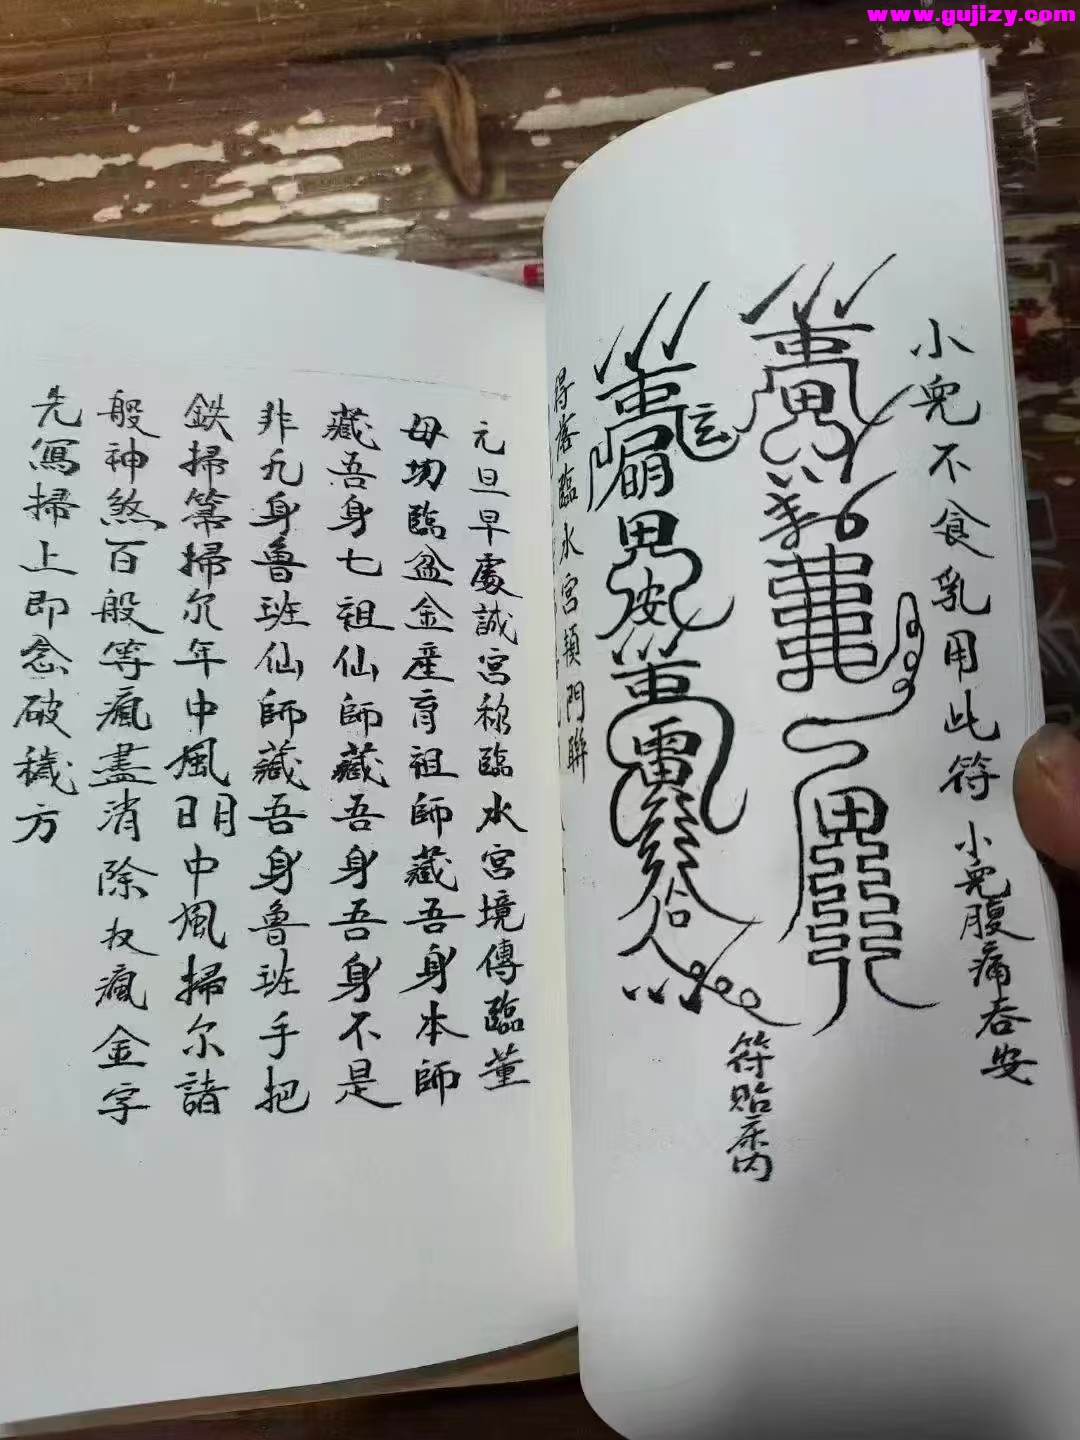 www.gujizy.com
小兒不食乳用此符
小兒腹痛吞安
符貼床內
臨水宮
門聯
元旦早處誠宮称臨水宮境傳臨董
母切臨盆金産育祖師藏吾身本師
藏吾身七祖仙師藏吾身吾身不是
非凡身魯班仙師藏吾身魯班手把
鉄掃箒掃尔年中瘋明中瘋掃尔諸
般神煞百般等瘋盡消除收瘋金字
先寫掃上即念破穢方